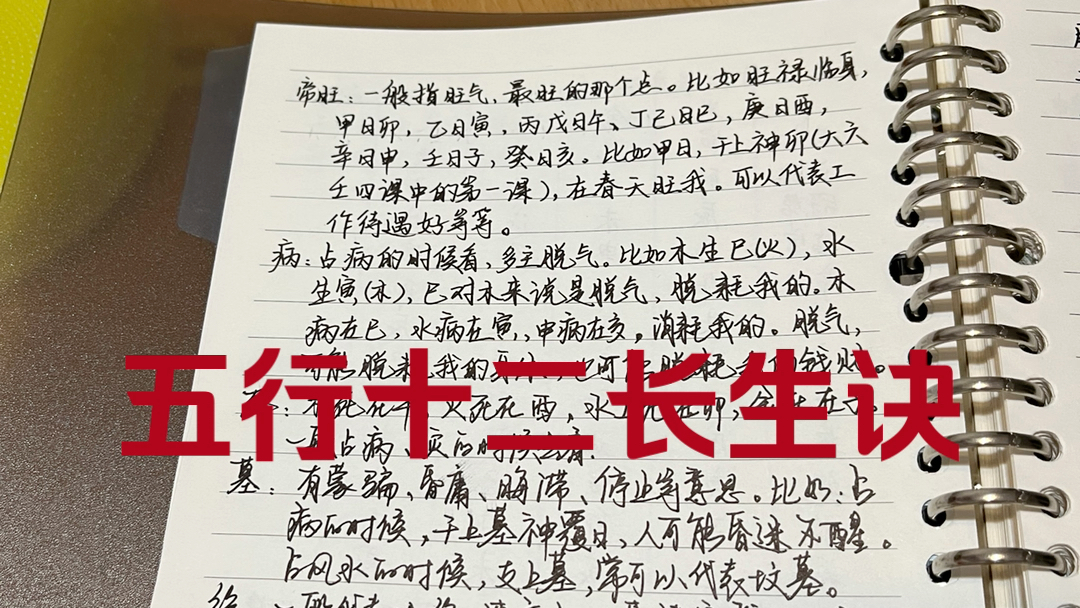 帝旺：一般指旺气，最旺的那个点。比如旺禄临身，
甲日卯，乙日寅，丙戊日午、丁己日巳，庚日酉，
辛日申，壬日子，癸日亥。比如甲日，干上神卯(大六
壬四课中的第一课)，在春天旺我。可以代表工
作待遇好等等。
病：占病的时候看，多主脱气。比如木生巳(火)，水
生寅(木)，巳对木来说是脱气，脱耗我的。木
病在巳，水病在寅，申病在亥。消耗我的。脱气，
可能脱耗我的身体，也可能脱耗我的钱财。
五行十二长生诀
：木死在午，火死在酉，水死在卯，金死在子。
一般占病、灾的时候看。
墓：有蒙骗、昏庸、晦滞、停止等意思。比如：占
病的时候，干上墓神覆日，人可能昏迷不醒。
占风水的时候，支上墓，常可以代表坟墓。